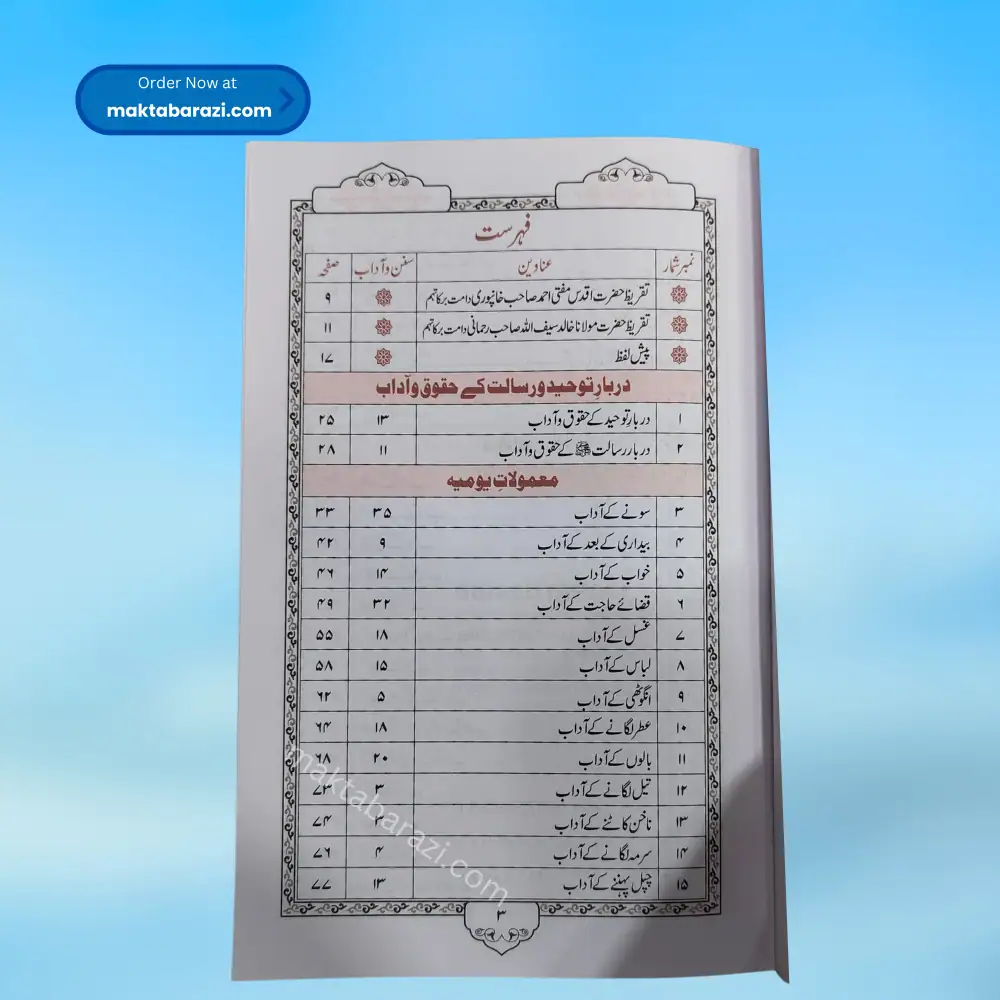 Order Now at
maktabarazi.com
فہرست
نمبر شمار عناوین سنن و آداب صفحہ
تقریظ حضرت اقدس مفتی احمد صاحب خانپوری دامت برکاتہم ۹
تقریظ حضرت مولانا خالد سیف اللہ صاحب رحمانی دامت برکاتہم ۱۱
پیش لفظ ۱۷
دربارِ توحید و رسالت کے حقوق و آداب
۱ دربارِ توحید کے حقوق و آداب ۱۳ ۲۵
۲ دربار رسالت ﷺ کے حقوق و آداب ۱۱ ۲۸
معمولاتِ یومیہ
۳ سونے کے آداب ۳۵ ۳۳
۴ بیداری کے بعد کے آداب ۹ ۴۲
۵ خواب کے آداب ۱۴ ۴۶
۶ قضائے حاجت کے آداب ۳۲ ۴۹
۷ غسل کے آداب ۱۸ ۵۵
۸ لباس کے آداب ۱۵ ۵۸
۹ انگوٹھی کے آداب ۵ ۶۲
۱۰ عطر لگانے کے آداب ۱۸ ۶۴
۱۱ بالوں کے آداب ۲۰ ۶۸
۱۲ تیل لگانے کے آداب ۳ ۷۳
۱۳ ناخن کاٹنے کے آداب ۷۴
۱۴ سرمہ لگانے کے آداب ۴ ۷۶
۱۵ چپل پہننے کے آداب ۱۳ ۷۷
۳
maktabarazi.com